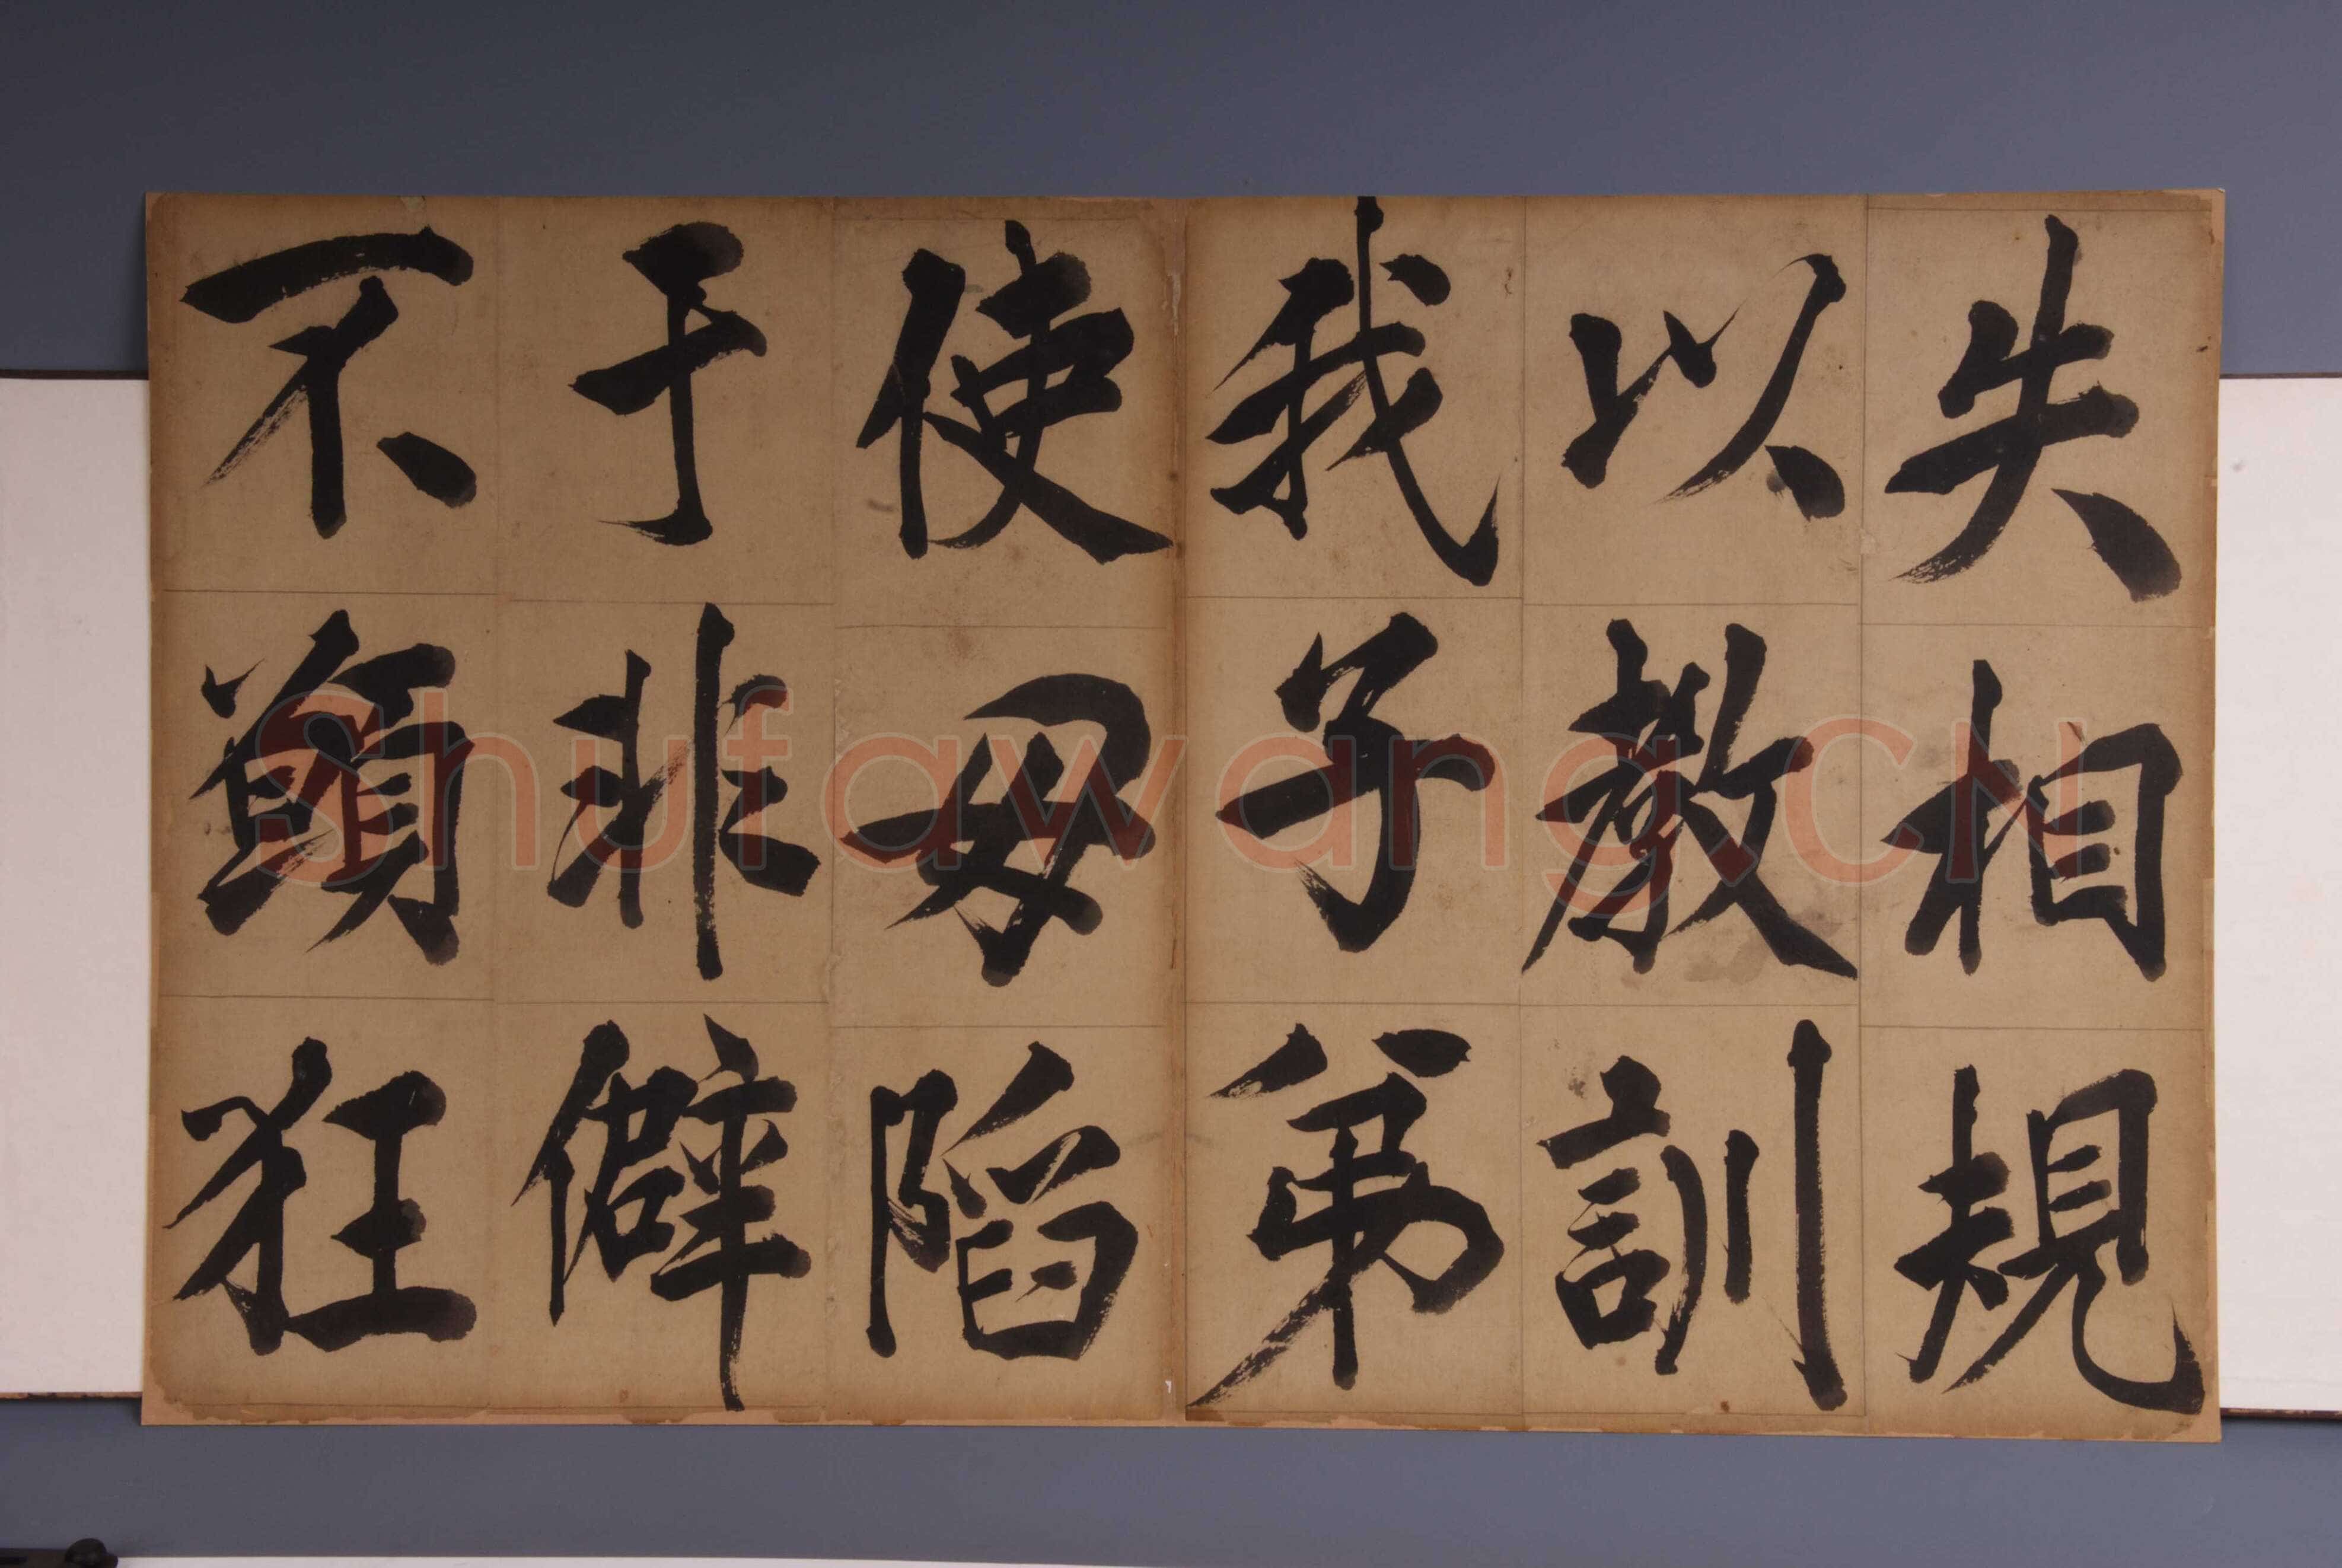 失相規
以教訓
我子弟
使毋陷
于非僻
不顛狂
Shufawang.CN